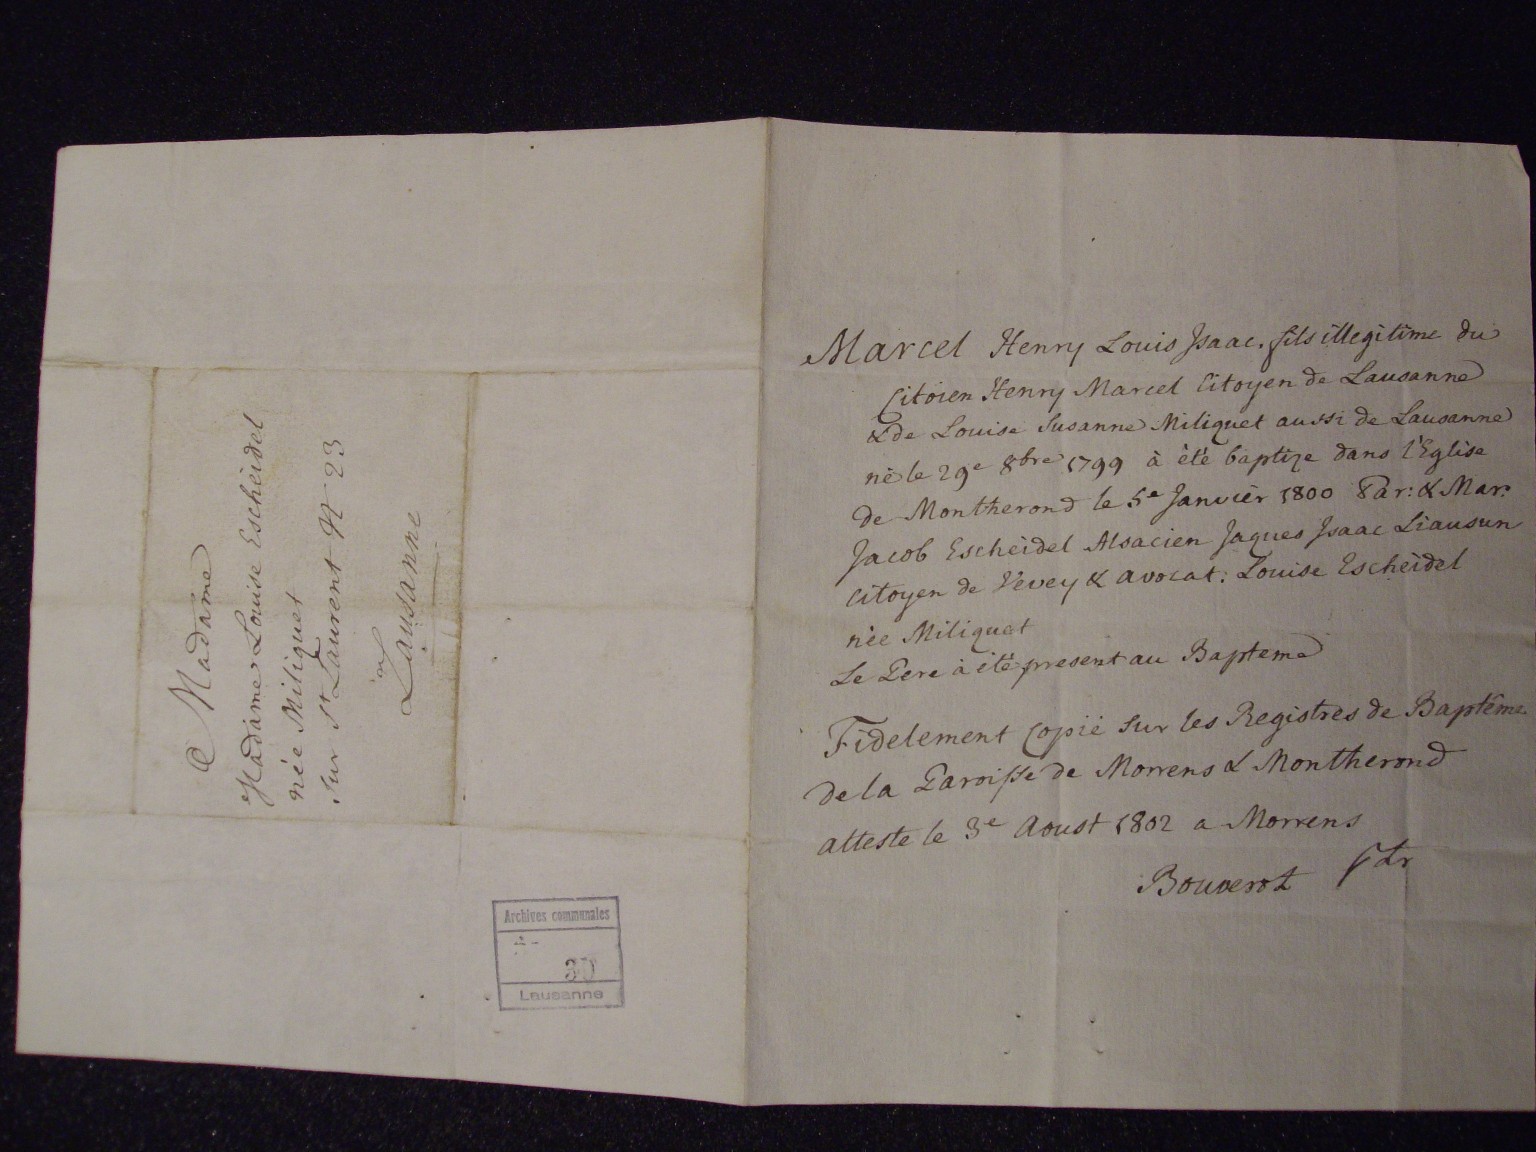 A Madame
Madame Louise Escheidel
née Miliquet
sur St Laurent N 23
in
Lausanne
Archives communales
30
Lausanne
Marcel Henry Louis Isaac. fils illegitime du
Citoien Henry Marcel Citoyen de Lausanne
& de Louise Susanne Miliquet aussi de Lausanne
né le 29e 8bre 1799 à été baptize dans l'Eglise
de Montherond le 5e Janvier 1800 Par: & Mar:
Jacob Escheidel Alsacien Jaques Isaac Liausun
Citoyen de Vevey & avocat: Louise Escheidel
née Miliquet
Le Pere à été present au Bapteme
Fidelement Copié sur les Registres de Baptême
de la Paroisse de Morrens & Montherond
atteste le 3e Aoust 1802 a Morrens
Bouverot